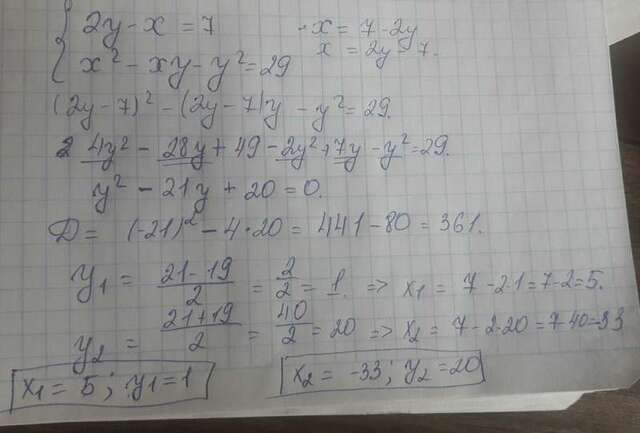 { 2y - x = 7    - x = 7 - 2y
x = 2y - 7.
x² - xy - y² = 29
(2y - 7)² - (2y - 7)y - y² = 29.
4y² - 28y + 49 - 2y² + 7y - y² = 29.
y² - 21y + 20 = 0.
D = (-21)² - 4·20 = 441 - 80 = 361.
y₁ = (21 - 19)/2 = 2/2 = 1. => x₁ = 7 - 2·1 = 7 - 2 = 5.
y₂ = (21 + 19)/2 = 40/2 = 20 => x₂ = 7 - 2·20 = 7 - 40 = -33
x₁ = 5; y₁ = 1    x₂ = -33; y₂ = 20